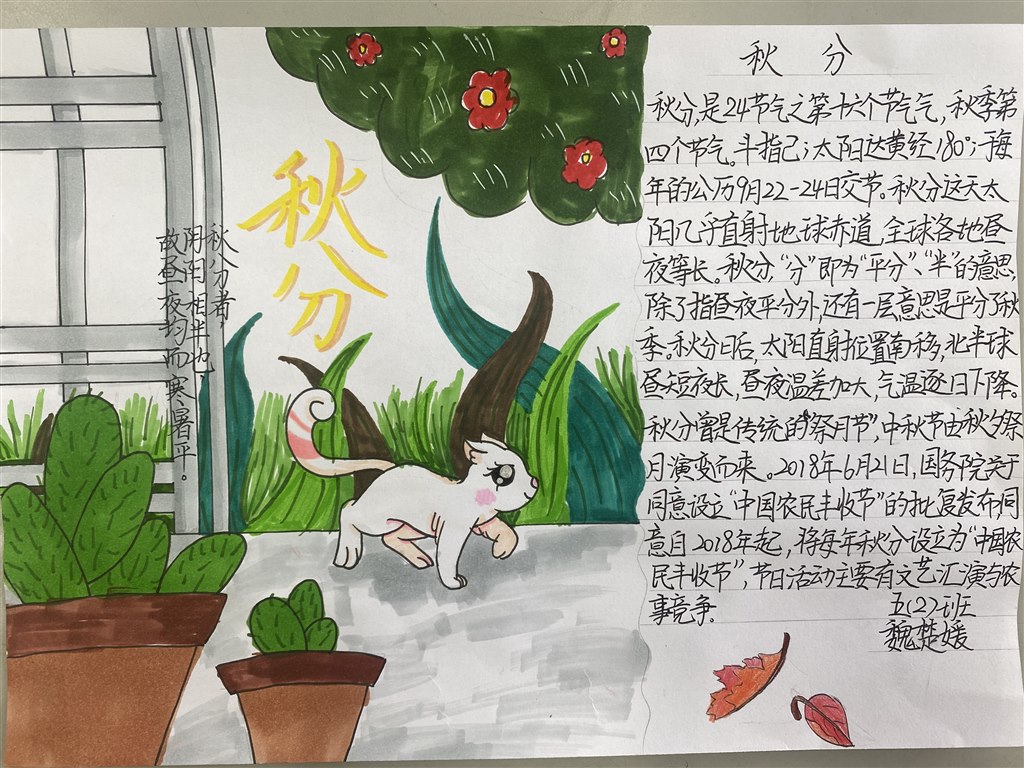 秋分
秋分者，
阴阳相半也
故昼夜均而寒暑平。
秋 分
秋分，是24节气之第十六个节气气，秋季第
四个节气。斗指己；太阳达黄经180°；于每
年的公历9月22-24日交节。秋分这天太
阳几乎直射地球赤道，全球各地昼
夜等长。秋分“分”即为“平分”、“半”的意思，
除了指昼夜平分外，还有一层意思是平分了秋
季。秋分日后，太阳直射位置南移，北半球
昼短夜长，昼夜温差加大，气温逐日下降。
秋分曾是传统的“祭月节”，中秋节由秋夕祭
月演变而来。2018年6月21日，国务院关于
同意设立“中国农民丰收节”的批复发布同
意自2018年起，将每年秋分设立为“中国农
民丰收节”，节日活动主要有文艺汇演与农
事竞争．
五（2）班
魏楚媛